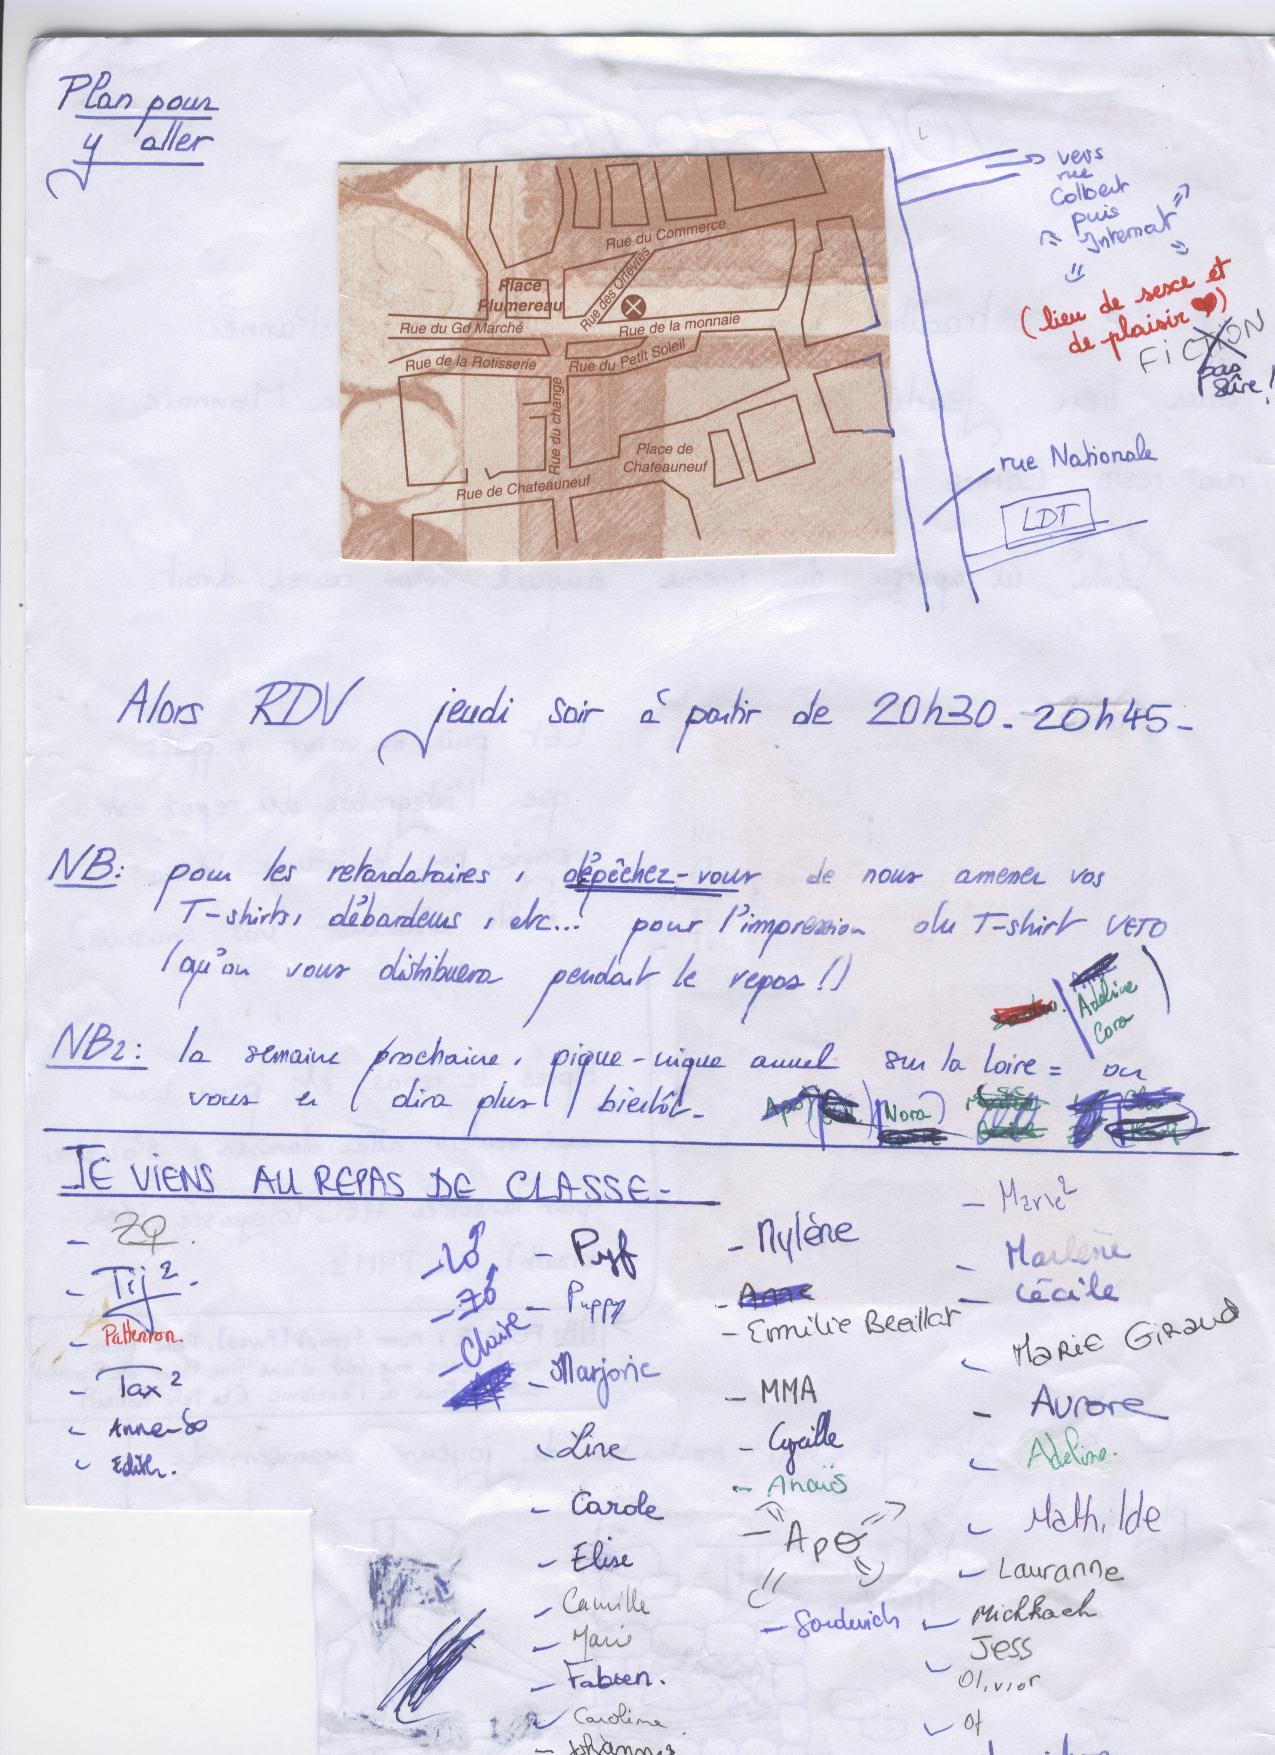 Plan pour
y aller
vers
rue
Colbert
puis
Internat
(lieu de sesce et
de plaisir ♥)
FICTION
pas
sûre !
Rue du Commerce
Place
Plumereau
Rue des Orfèvres
Rue du Gd Marché
Rue de la monnaie
Rue de la Rotisserie
Rue du Petit Soleil
Rue du change
Place de
Chateauneuf
Rue de Chateauneuf
rue Nationale
LDT
Alors RDV jeudi soir à partir de 20h30-20h45-
NB: pour les retardataires, dépêchez-vous de nous amener vos
T-shirts, débardeurs, etc... pour l'impression du T-shirt VETO
(qu'on vous distribuera pendant le repas !)
Adeline
Cora
NB2: la semaine prochaine, pique-nique annuel sur la Loire = on
vous en dira plus bientôt-
Apo
Nora
JE VIENS AU REPAS DE CLASSE-
- Tij²
- Patterron.
- Tax²
- Anne-So
- Edith.
- Claire
- Pyf
- Puppy
- Marjorie
- Line
- Carole
- Elise
- Camille
- Marie
- Fabien.
- Caroline
- Johanna
- Mylène
- Anne
- Emilie Breillat
- MMA
- Cyrille
- Anaïs
- Apo
- Sandwich
- Marie²
- Marlène
- Cécile
- MARIE GIRAUD
- Aurore
- Adeline.
- Mathilde
- Lauranne
- Michkach
- Jess
- Olivier
- Of